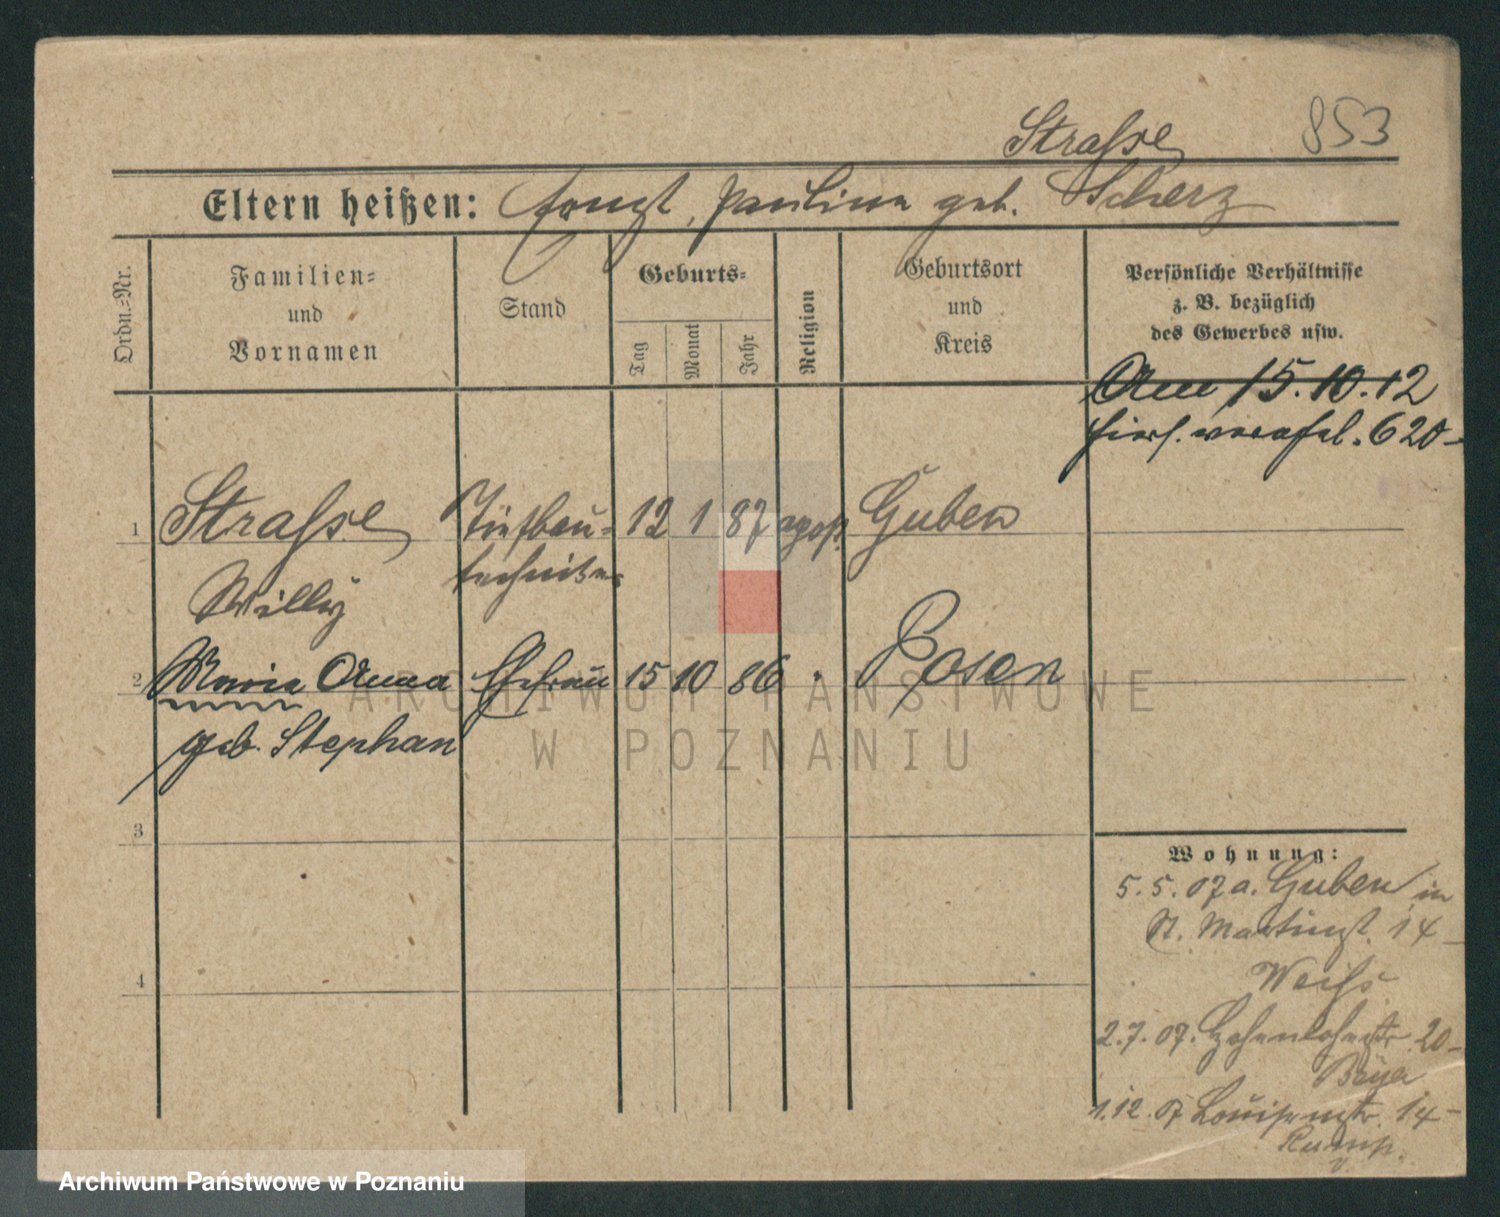 853
Straße
Eltern heißen: Ernst, Pauline geb. Scherz
Ordn.-Nr.
Familien-
und
Vornamen
Stand
Geburts-
Tag
Monat
Jahr
Religion
Geburtsort
und
Kreis
Persönliche Verhältnisse
z. B. bezüglich
des Gewerbes usw.
Am 15.10.12
620
1 Straße Tiefbau- 12 1 87 Guben
Willy techniker
2 Maria Anna Ehefrau 15 10 86 " Posen
geb. Stephan
3
4
Wohnung:
5.5.07 a. Guben in
St. Martinst. 14
Weiß
2.7.07. Hohenlohestr 20
1.12.07 Louisenstr. 14
ARCHIWUM PAŃSTWOWE
W POZNANIU
Archiwum Państwowe w Poznaniu